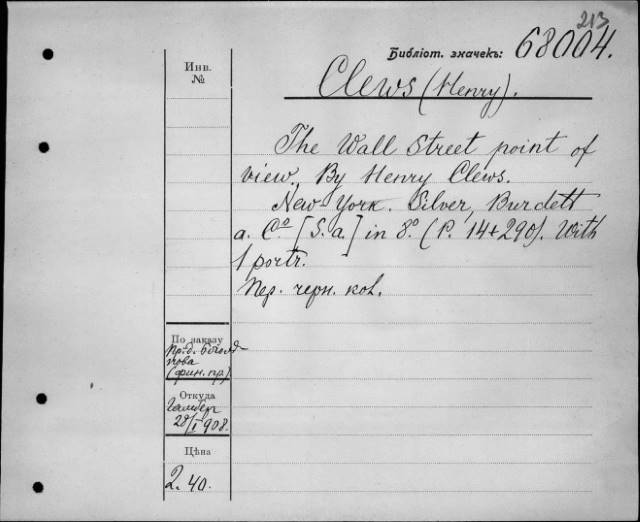 213
Библіот. значекъ: 68004.
Инв.
№
Clews (Henry).
The Wall Street point of
view. By Henry Clews.
New-York. Silver, Burdett
a. Cº [S. a.] in 8º. (P. 14+290). With
1 portr.
Пер. черн. кол.
По заказу
Пр.-д.
(фин. пр.)
Откуда
28/I 908.
Цѣна
2. 40.